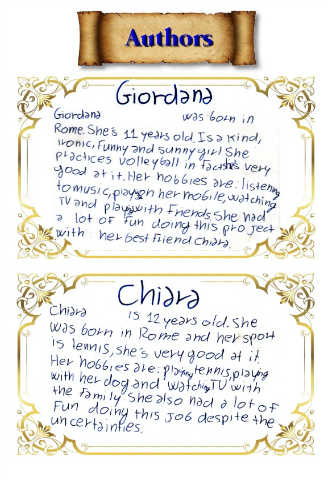 Authors
Giordana
Giordana was born in
Rome. She's 11 years old. Is a kind,
ironic, funny and sunny girl. She
practices volleyball in fact she's very
good at it. Her hobbies are: listening
to music, playing on her mobile, watching
TV and playing with friends. She had
a lot of fun doing this project
with her best friend Chiara.
Chiara
Chiara is 12 years old. She
was born in Rome and her sport
is tennis, she's very good at it.
Her hobbies are: playing tennis, playing
with her dog and watching TV with
the family. She also had a lot of
fun doing this job despite the
uncertainties.